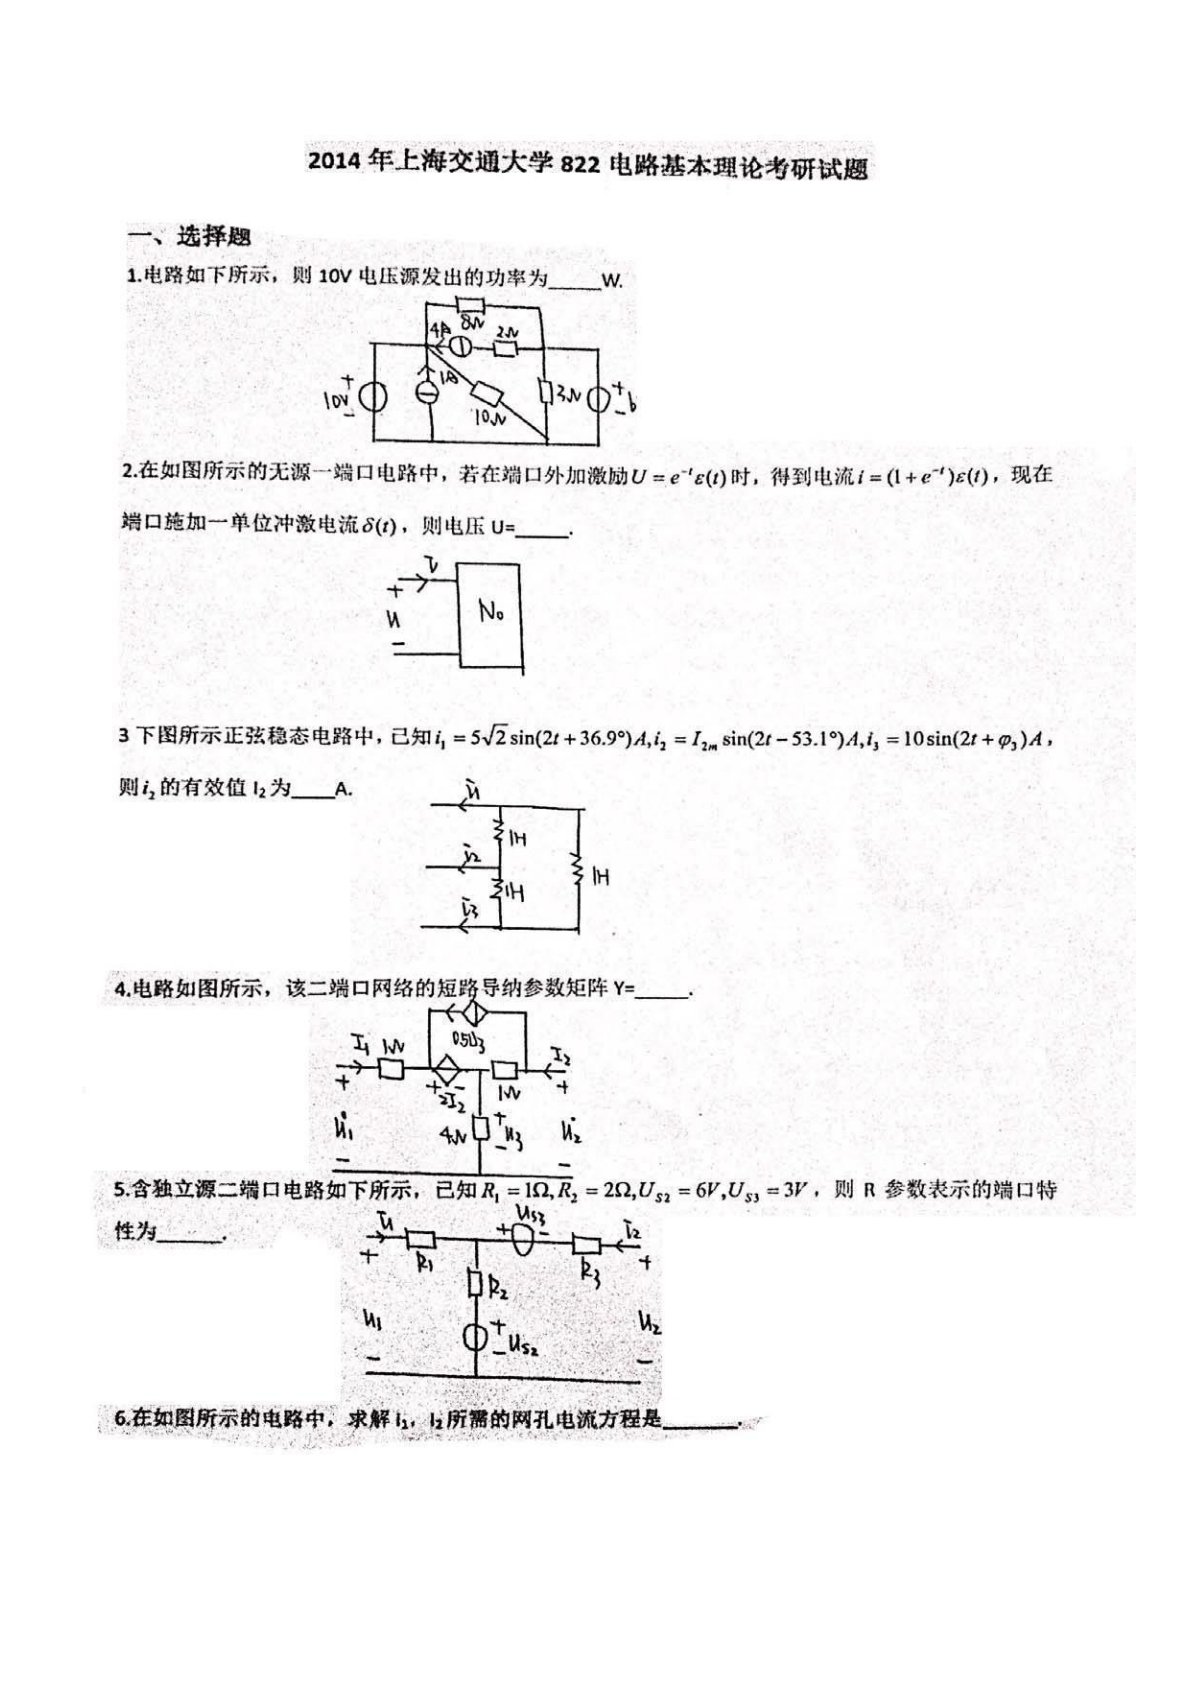 2014 年上海交通大学 822 电路基本理论考研试题
一、选择题
1.电路如下所示，则 10V 电压源发出的功率为_____W.
8Ω
4A
2Ω
1A
+
10V
-
10Ω
3Ω
+
-
2.在如图所示的无源一端口电路中，若在端口外加激励U = e⁻ᵗε(t)时，得到电流i = (1+e⁻ᵗ)ε(t)，现在
端口施加一单位冲激电流δ(t)，则电压 U=_____.
i
+
u
-
N₀
3 下图所示正弦稳态电路中，已知i₁ = 5√2sin(2t+36.9°)A,i₂ = I₂ₘ sin(2t−53.1°)A,i₃ = 10sin(2t+φ₃)A，
则i₂的有效值 I₂为____A.
i₁
1H
i₂
1H
1H
i₃
4.电路如图所示，该二端口网络的短路导纳参数矩阵 Y=_____.
0.5U₃
I₁ 1Ω
I₂
+
+ 2I₂ -
1Ω
+
U̇₁
4Ω
+
U₃
-
U̇₂
-
-
5.含独立源二端口电路如下所示，已知 R₁ = 1Ω,R₂ = 2Ω,U_S2 = 6V,U_S3 = 3V，则 R 参数表示的端口特
性为______.
i₁
U_S3
i₂
+
R₁
+
-
R₃
+
R₂
U₁
+
U_S2
-
U₂
-
-
6.在如图所示的电路中，求解 i₁，i₂所需的网孔电流方程是_______.